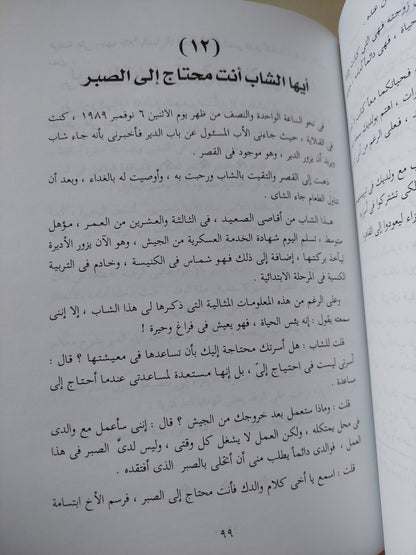 (١٢)
أيها الشاب أنت محتاج إلى الصبر
فى نحو الساعة الواحدة والنصف من ظهر يوم الاثنين ٦ نوفمبر ١٩٨٩ ، كنت
فى القلاية ، حيث جاءنى الأب المسئول عن باب الدير فأخبرنى بأنه جاء شاب
يريد أن يزور الدير ، وهو موجود فى القصر .
ذهبت إلى القصر والتقيت بالشاب ورحبت به ، وأوصيت له بالغداء ، وبعد أن
تناول الطعام جاء الشاى .
هذا الشاب من أقاصى الصعيد ، فى الثالثة والعشرين من العمر ، مؤهل
متوسط ، تسلم اليوم شهادة الخدمة العسكرية من الجيش ، وهو الآن يزور الأديرة
ليأخذ بركتها ، إضافة إلى ذلك فهو شماس فى الكنيسة ، وخادم فى التربية
الكنسية فى المرحلة الابتدائية .
وعلى الرغم من هذه المعلومات المثالية التى ذكرها لى هذا الشاب ، إلا إننى
سمعته يقول : إنه يئس الحياة ، فهو يعيش فى فراغ وحيرة !
قلت للشاب : هل أسرتك محتاجة إليك بأن تساعدها فى معيشتها ؟ قال :
أسرتى ليست فى احتياج إلىَّ ، بل إنها مستعدة لمساعدتى عندما أحتاج إلى
مساعدة .
قلت : وماذا ستعمل بعد خروجك من الجيش ؟ قال : إننى سأعمل مع والدى
فى محل يمتلكه ، ولكن العمل لا يشغل كل وقتى ، وليس لدىَّ الصبر فى هذا
العمل ، فوالدى دائماً يطلب منى أن أتحلى بالصبر الذى أفتقده .
قلت : اسمع يا أخى كلام والدك فأنت محتاج إلى الصبر ، فرسم الأخ ابتسامة
٩٩